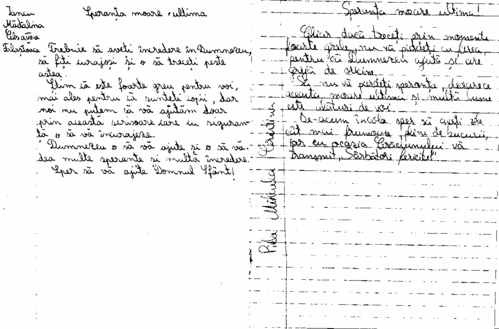 Iancu
Mădălina
Cesarina
Filofteia
Speranța moare ultima
Trebuie să aveți încredere în Dumnezeu,
să fiți curajoși și o să treceți peste
astea.
Știm că este foarte greu pentru voi,
mai ales pentru că sunteți copii, dar
noi nu putem să vă ajutăm doar
prin această scrisoare care cu siguran-
ță o să vă încurajeze.
Dumnezeu o să vă ajute și o să vă
dea multe speranțe și multă încredere.
Sper să vă ajute Domnul Sfânt!
Speranța moare ultima!
Chiar dacă treceți prin momente
foarte grele, nu vă pierdeți cu firea,
pentru că Dumnezeu ajută și are
grijă de oricine.
Să nu vă pierdeți speranța deoarece
aceasta moare ultima și multă lume
este alături de voi.
De-acum încolo sper să aveți
cât mai frumoase, pline de bucurii,
iar cu ocazia Crăciunului vă
transmit „Sărbători fericite!"
Pîrlea Mihaela Cristina